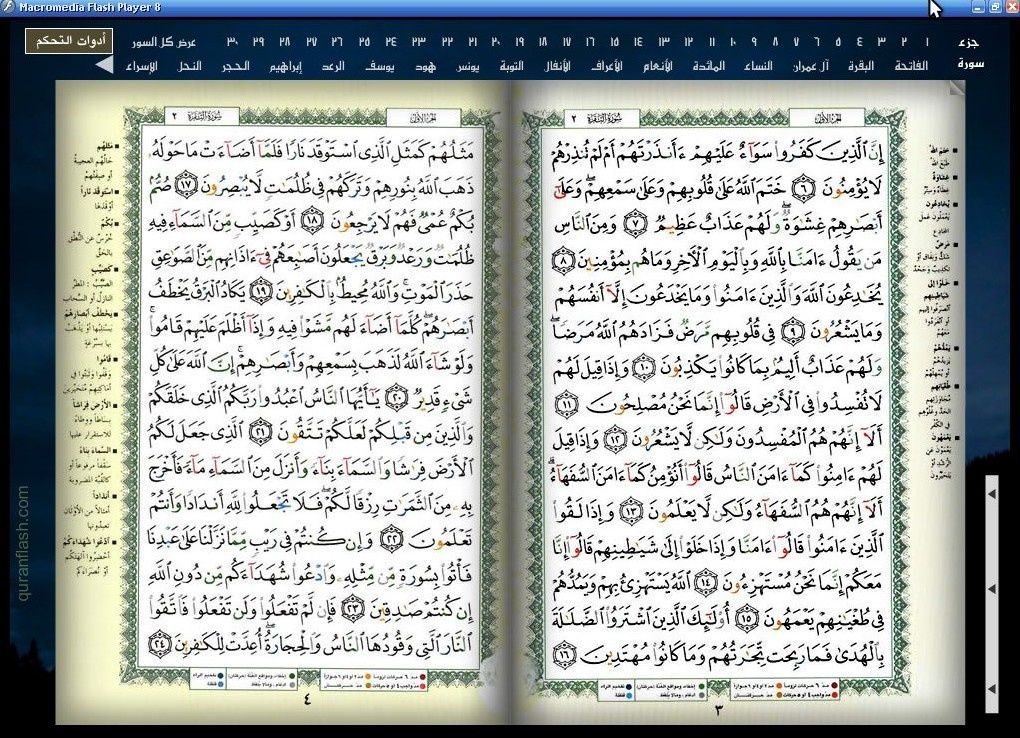 Macromedia Flash Player 8
أدوات التحكم
جزء ١ ٢ ٣ ٤ ٥ ٦ ٧ ٨ ٩ ١٠ ١١ ١٢ ١٣ ١٤ ١٥ ١٦ ١٧ ١٨ ١٩ ٢٠ ٢١ ٢٢ ٢٣ ٢٤ ٢٥ ٢٦ ٢٧ ٢٨ ٢٩ ٣٠ عرض كل السور
سورة الفاتحة البقرة آل عمران النساء المائدة الأنعام الأعراف الأنفال التوبة يونس هود يوسف الرعد إبراهيم الحجر النحل الإسراء
الجزء الأول
سورة البقرة ٢
إِنَّ ٱلَّذِينَ كَفَرُواْ سَوَآءٌ عَلَيْهِمْ ءَأَنذَرْتَهُمْ أَمْ لَمْ تُنذِرْهُمْ
لَا يُؤْمِنُونَ ٦ خَتَمَ ٱللَّهُ عَلَىٰ قُلُوبِهِمْ وَعَلَىٰ سَمْعِهِمْ ۖ وَعَلَىٰٓ
أَبْصَـٰرِهِمْ غِشَـٰوَةٌ ۖ وَلَهُمْ عَذَابٌ عَظِيمٌ ٧ وَمِنَ ٱلنَّاسِ
مَن يَقُولُ ءَامَنَّا بِٱللَّهِ وَبِٱلْيَوْمِ ٱلْـَٔاخِرِ وَمَا هُم بِمُؤْمِنِينَ ٨
يُخَـٰدِعُونَ ٱللَّهَ وَٱلَّذِينَ ءَامَنُواْ وَمَا يَخْدَعُونَ إِلَّآ أَنفُسَهُمْ
وَمَا يَشْعُرُونَ ٩ فِى قُلُوبِهِم مَّرَضٌ فَزَادَهُمُ ٱللَّهُ مَرَضًا ۖ
وَلَهُمْ عَذَابٌ أَلِيمٌۢ بِمَا كَانُواْ يَكْذِبُونَ ١٠ وَإِذَا قِيلَ لَهُمْ
لَا تُفْسِدُواْ فِى ٱلْأَرْضِ قَالُوٓاْ إِنَّمَا نَحْنُ مُصْلِحُونَ ١١
أَلَآ إِنَّهُمْ هُمُ ٱلْمُفْسِدُونَ وَلَـٰكِن لَّا يَشْعُرُونَ ١٢ وَإِذَا قِيلَ
لَهُمْ ءَامِنُواْ كَمَآ ءَامَنَ ٱلنَّاسُ قَالُوٓاْ أَنُؤْمِنُ كَمَآ ءَامَنَ ٱلسُّفَهَآءُ ۗ
أَلَآ إِنَّهُمْ هُمُ ٱلسُّفَهَآءُ وَلَـٰكِن لَّا يَعْلَمُونَ ١٣ وَإِذَا لَقُواْ
ٱلَّذِينَ ءَامَنُواْ قَالُوٓاْ ءَامَنَّا وَإِذَا خَلَوْاْ إِلَىٰ شَيَـٰطِينِهِمْ قَالُوٓاْ إِنَّا
مَعَكُمْ إِنَّمَا نَحْنُ مُسْتَهْزِءُونَ ١٤ ٱللَّهُ يَسْتَهْزِئُ بِهِمْ وَيَمُدُّهُمْ
فِى طُغْيَـٰنِهِمْ يَعْمَهُونَ ١٥ أُوْلَـٰٓئِكَ ٱلَّذِينَ ٱشْتَرَوُاْ ٱلضَّلَـٰلَةَ
بِٱلْهُدَىٰ فَمَا رَبِحَت تِّجَـٰرَتُهُمْ وَمَا كَانُواْ مُهْتَدِينَ ١٦
٣
الجزء الأول
سورة البقرة ٢
مَثَلُهُمْ كَمَثَلِ ٱلَّذِى ٱسْتَوْقَدَ نَارًا فَلَمَّآ أَضَآءَتْ مَا حَوْلَهُۥ
ذَهَبَ ٱللَّهُ بِنُورِهِمْ وَتَرَكَهُمْ فِى ظُلُمَـٰتٍ لَّا يُبْصِرُونَ ١٧ صُمٌّۢ
بُكْمٌ عُمْىٌ فَهُمْ لَا يَرْجِعُونَ ١٨ أَوْ كَصَيِّبٍ مِّنَ ٱلسَّمَآءِ فِيهِ
ظُلُمَـٰتٌ وَرَعْدٌ وَبَرْقٌ يَجْعَلُونَ أَصَـٰبِعَهُمْ فِىٓ ءَاذَانِهِم مِّنَ ٱلصَّوَٰعِقِ
حَذَرَ ٱلْمَوْتِ ۚ وَٱللَّهُ مُحِيطٌۢ بِٱلْكَـٰفِرِينَ ١٩ يَكَادُ ٱلْبَرْقُ يَخْطَفُ
أَبْصَـٰرَهُمْ ۖ كُلَّمَآ أَضَآءَ لَهُم مَّشَوْاْ فِيهِ وَإِذَآ أَظْلَمَ عَلَيْهِمْ قَامُواْ ۚ
وَلَوْ شَآءَ ٱللَّهُ لَذَهَبَ بِسَمْعِهِمْ وَأَبْصَـٰرِهِمْ ۚ إِنَّ ٱللَّهَ عَلَىٰ كُلِّ
شَىْءٍ قَدِيرٌ ٢٠ يَـٰٓأَيُّهَا ٱلنَّاسُ ٱعْبُدُواْ رَبَّكُمُ ٱلَّذِى خَلَقَكُمْ
وَٱلَّذِينَ مِن قَبْلِكُمْ لَعَلَّكُمْ تَتَّقُونَ ٢١ ٱلَّذِى جَعَلَ لَكُمُ
ٱلْأَرْضَ فِرَٰشًا وَٱلسَّمَآءَ بِنَآءً وَأَنزَلَ مِنَ ٱلسَّمَآءِ مَآءً فَأَخْرَجَ
بِهِۦ مِنَ ٱلثَّمَرَٰتِ رِزْقًا لَّكُمْ ۖ فَلَا تَجْعَلُواْ لِلَّهِ أَندَادًا وَأَنتُمْ
تَعْلَمُونَ ٢٢ وَإِن كُنتُمْ فِى رَيْبٍ مِّمَّا نَزَّلْنَا عَلَىٰ عَبْدِنَا
فَأْتُواْ بِسُورَةٍ مِّن مِّثْلِهِۦ وَٱدْعُواْ شُهَدَآءَكُم مِّن دُونِ ٱللَّهِ
إِن كُنتُمْ صَـٰدِقِينَ ٢٣ فَإِن لَّمْ تَفْعَلُواْ وَلَن تَفْعَلُواْ فَٱتَّقُواْ
ٱلنَّارَ ٱلَّتِى وَقُودُهَا ٱلنَّاسُ وَٱلْحِجَارَةُ ۖ أُعِدَّتْ لِلْكَـٰفِرِينَ ٢٤
٤
quranflash.com